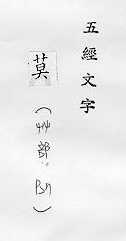 五經文字
莫(艸部)